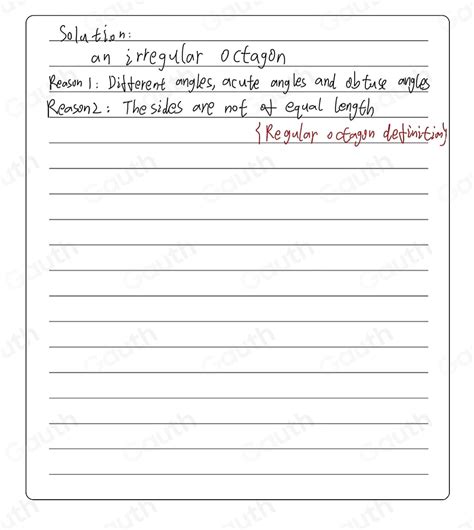 Solution:
an irregular octagon
Reason 1: Different angles, acute angles and obtuse angles
Reason2: The sides are not of equal length
{Regular octagon definition}
Gauth